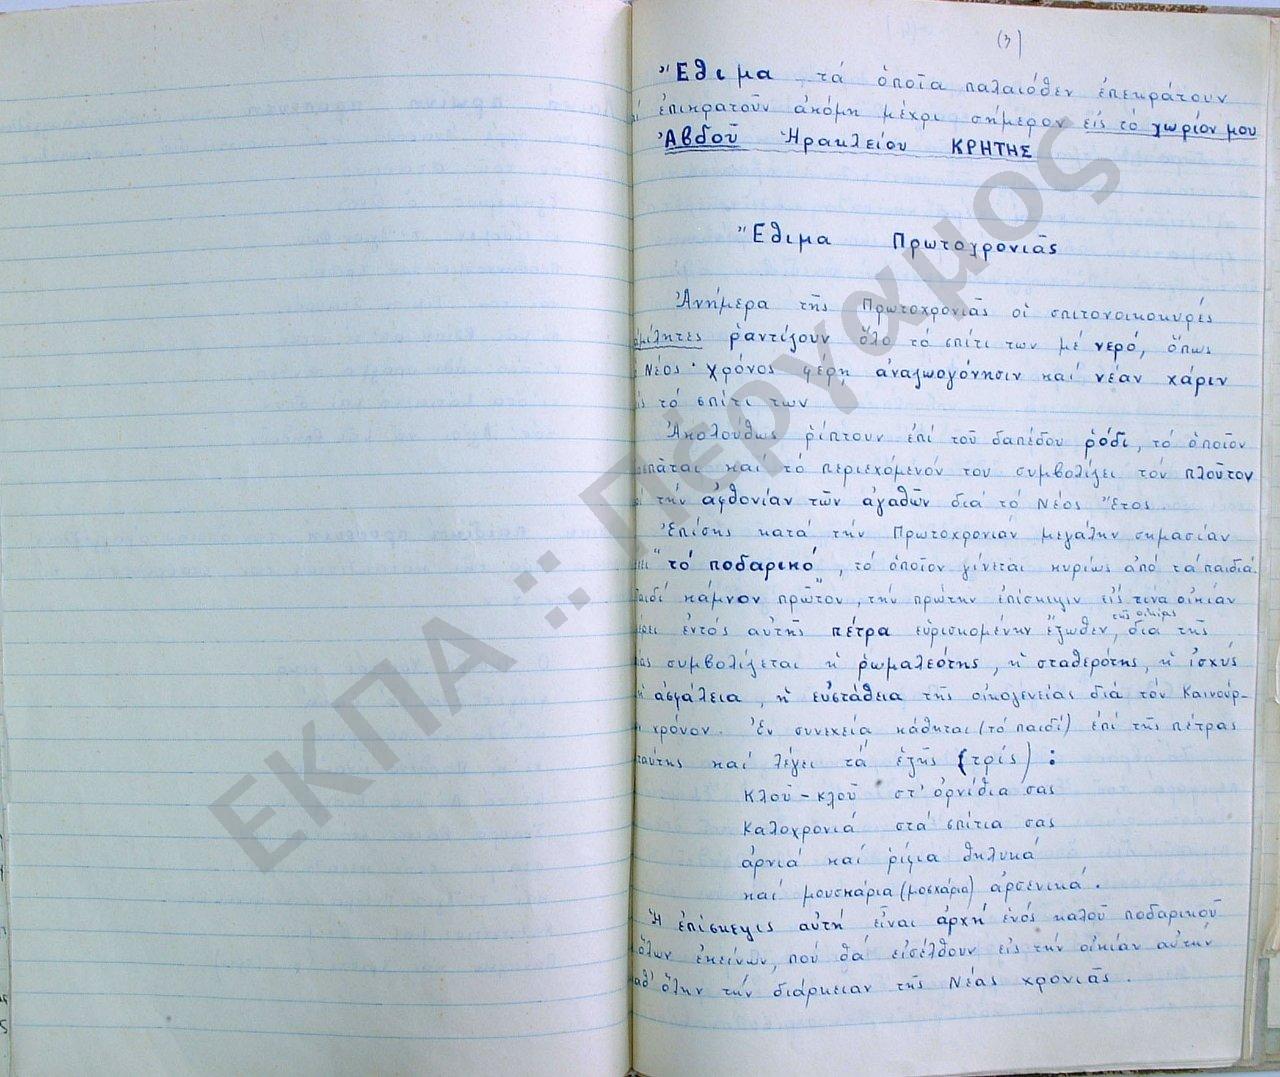 (3)
Ἔθιμα τά ὁποῖα παλαιόθεν ἐπεκράτουν
ἐπικρατοῦν ἀκόμη μέχρι σήμερον εἰς τό χωρίον μου
Ἀβδοῦ Ἡρακλείου ΚΡΗΤΗΣ
Ἔθιμα Πρωτοχρονιᾶς
Ἀνήμερα τῆς Πρωτοχρονιᾶς οἱ σπιτονοικοκυρές
ἀμίλητες ραντίζουν ὅλο τό σπίτι των μέ νερό, ὅπως
Νέος χρόνος φέρῃ ἀναζωογόνησιν καί νέαν χάριν
τό σπίτι των
Ἀκολούθως ρίπτουν ἐπί τοῦ δαπέδου ρόδι, τό ὁποῖον
σπᾶται καί τό περιεχόμενόν του συμβολίζει τόν πλοῦτον
τήν ἀφθονίαν τῶν ἀγαθῶν διά τό Νέος Ἔτος
Ἐπίσης κατά τήν Πρωτοχρονιάν μεγάλην σημασίαν
"τό ποδαρικό", τό ὁποῖον γίνεται κυρίως ἀπό τά παιδιά.
κάμνον πρῶτον, τήν πρώτην ἐπίσκεψιν εἰς τινα οἰκίαν
ἐντός αὐτῆς πέτρα εὑρισκομένην ἔξωθεν τῆς οἰκίας, διά τῆς
συμβολίζεται ἡ ρωμαλεότης, ἡ σταθερότης, ἡ ἰσχύς
ἡ ἀσφάλεια, ἡ εὐστάθεια τῆς οἰκογενείας διά τόν Καινούρ-
χρόνον. Ἐν συνεχεία κάθηται (τό παιδί) ἐπί τῆς πέτρας
ταύτης καί λέγει τά ἑξῆς (τρίς) :
Κλοῦ - κλοῦ στ' ὀρνίθια σας
Καλοχρονιά στά σπίτια σας
ἀρνιά καί ρίφια θηλυκά
καί μουσκάρια (μοσχάρια) ἀρσενικά.
Ἡ ἐπίσκεψις αὐτή εἶναι ἀρχή ἑνός καλοῦ ποδαρικοῦ
ὅλων ἐκείνων, πού θά εἰσέλθουν εἰς τήν οἰκίαν αὐτήν
καθ' ὅλην τήν διάρκειαν τῆς Νέας χρονιᾶς.
ΕΚΠΑ :: Πέργαμος